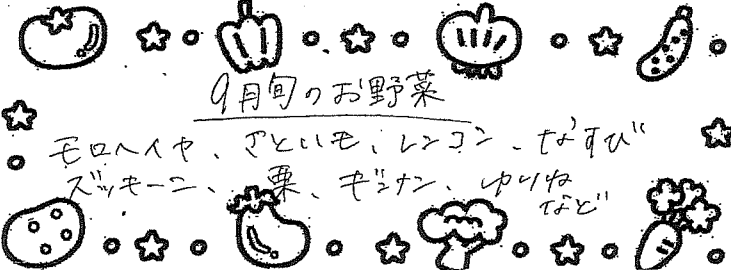 9月旬のお野菜
モロヘイヤ、さといも、レンコン、なすび
ズッキーニ、栗、ギンナン、ゆりね
など